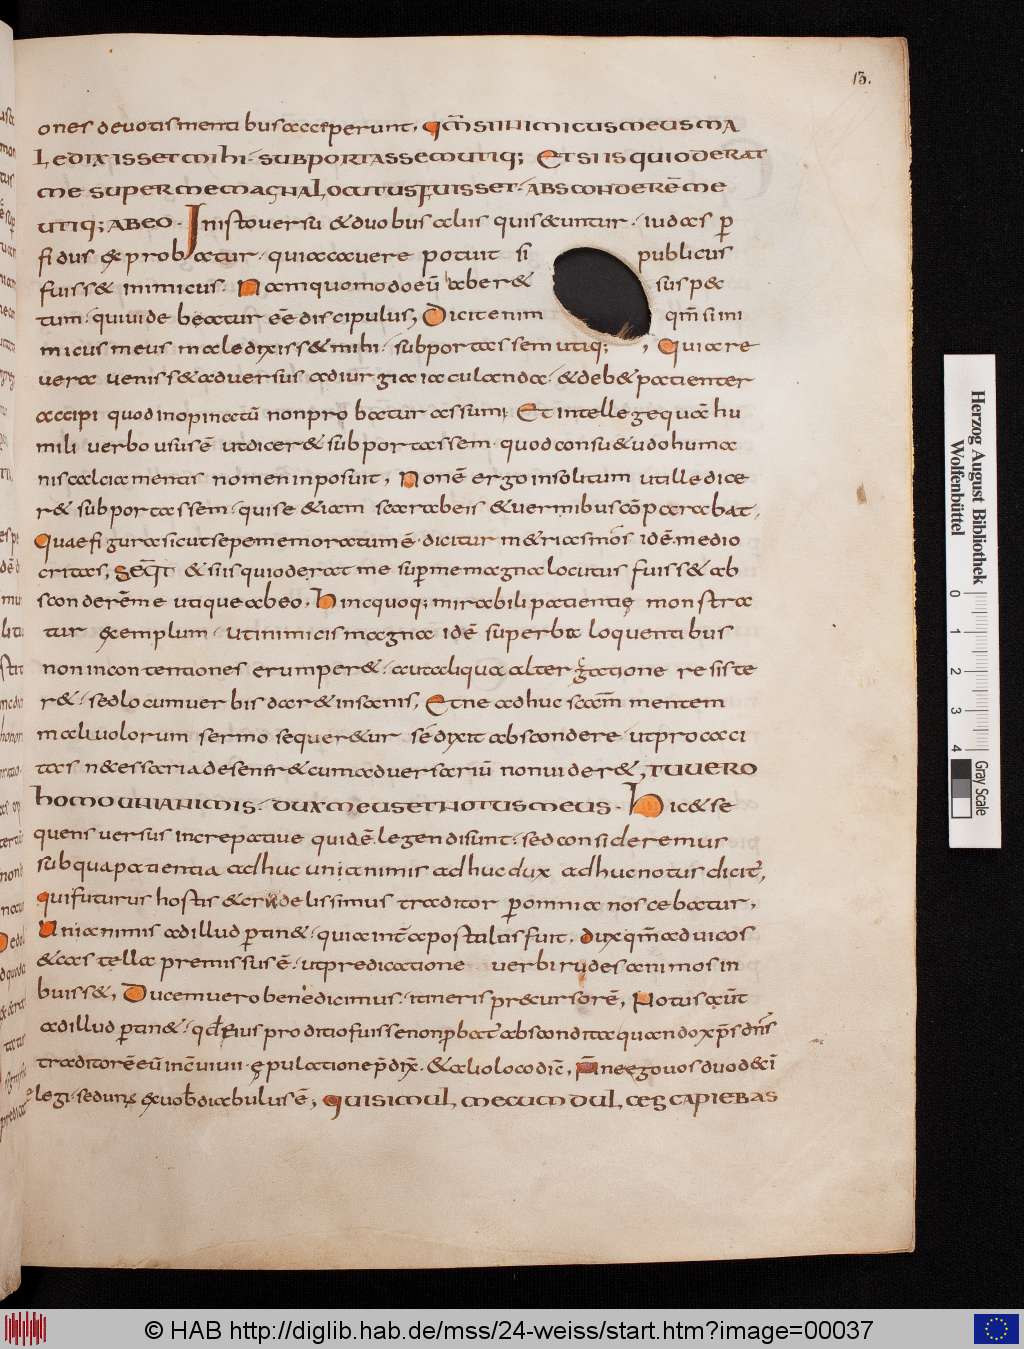 13.
ones deuotis mentibus acceperunt, Qm̄ si inimicus meus ma
ledixisset mihi · subportassem utiq; Et si is qui oderat
me super me magna locutus fuisset · absconderē me
utiq; ab eo · In isto uersu & duobus aliis quis ecuntur · iudas p
fidus exprobatur · quia cauere potuit si publicus
fuiss& inimicus. Nam quomodo eū haber& suspec
tum · qui uidebatur eē discipulus, Dicit enim qm̄ si ini
micus meus maledixiss& mihi · subportassem utiq; , Quia re
uera ueniss& aduersus ad iurgia iaculanda · & deb& patienter
accipi quod inopinatū non probatur assumi Et intellege quā hu
mili uerbo usus ē ut dicer& subportassem · quod consu&udo huma
nis calciamentis nomen inposuit, Non ē ergo insolitum ut ille dice
r& subportassem · qui se & iam scarabeis & uermibus cōparabat,
Quae figura sicut sepe memoratum ē · dicitur m&riasmos idē mediocritas,
Seqt̄ & si is qui oderat me sup me magna locutus fuiss& ab
sconderem me utique ab eo. Hinc quoq; mirabili patientię monstra
tur exemplum · ut inimicis magna idē superba loquentibus
non in contentiones erumper& · aut aliqua altergatione resiste
r& · sed locum uerbis dar& insanis, Et ne adhuc scām mentem
maliuolorum sermo sequer&ur se dixit abscondere · ut procaci
tas n&essaria desenir& cum aduersariū non uider&, TU UERO
HOMO UNIANIMIS · DUX MEUS ET NOTUS MEUS · Hic & se
quens uersus increpatiue quidē legendi sunt · sed consideremus
sub qua patientia adhuc unianimis adhuc dux adhuc notus dicit,
qui futurus hostis & crudelissimus traditor p omnia noscebatur,
Unianimis ad illud ptin& · quia int apostolos fuit. dux qm̄ ad uicos
& castella premissus ē · ut predicatione uerbi rudes animos in
buiss&, Ducem uero benedicimus · itineris precursorē, Notus aūt
ad illud ptin& · qd eius proditio fuisse non pbat abscondita quando xps dns
traditorē eū in conuiuii epulatione pdix · & alio loco dic, Nne ego uos duodeci
legi · sed unus ex uob diabulus ē; QUI SIMUL MECUM DULCES CAPIEBAS
Herzog August Bibliothek
Wolfenbüttel
0 1 2 3 4
Gray Scale
© HAB http://diglib.hab.de/mss/24-weiss/start.htm?image=00037